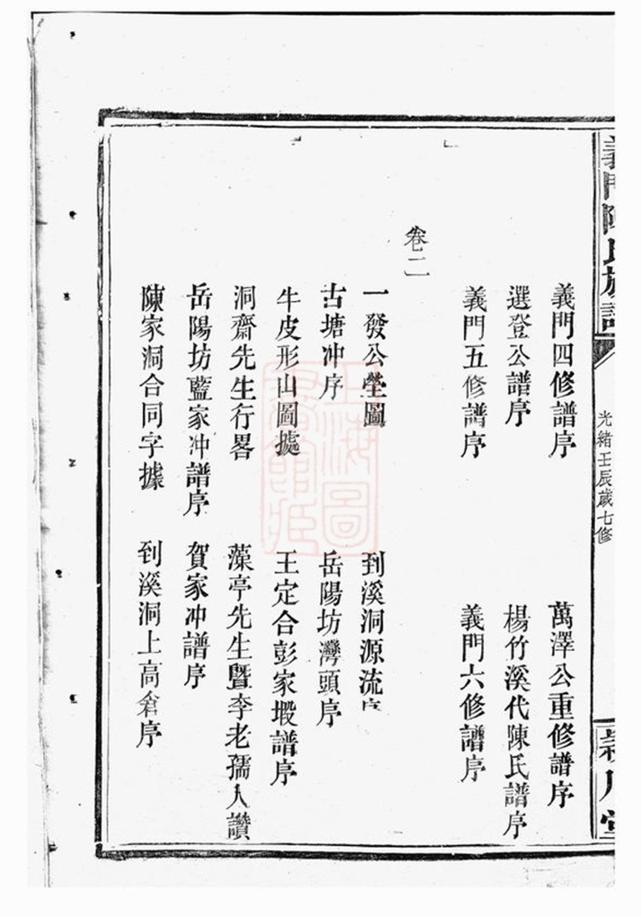 義門陳氏族譜
光緒壬辰歲七修
潁川堂
義門四修譜序　萬澤公重修譜序
選登公譜序　楊竹溪代陳氏譜序
義門五修譜序　義門六修譜序
卷二
一發公塋圖　到溪洞源流序
古塘冲序　岳陽坊灣頭序
牛皮形山圖據　王定合彭家塅譜序
洞齋先生行畧　藻亭先生暨李老孺人讚
岳陽坊藍家冲譜序　賀家冲譜序
陳家洞合同字據　到溪洞上高倉序